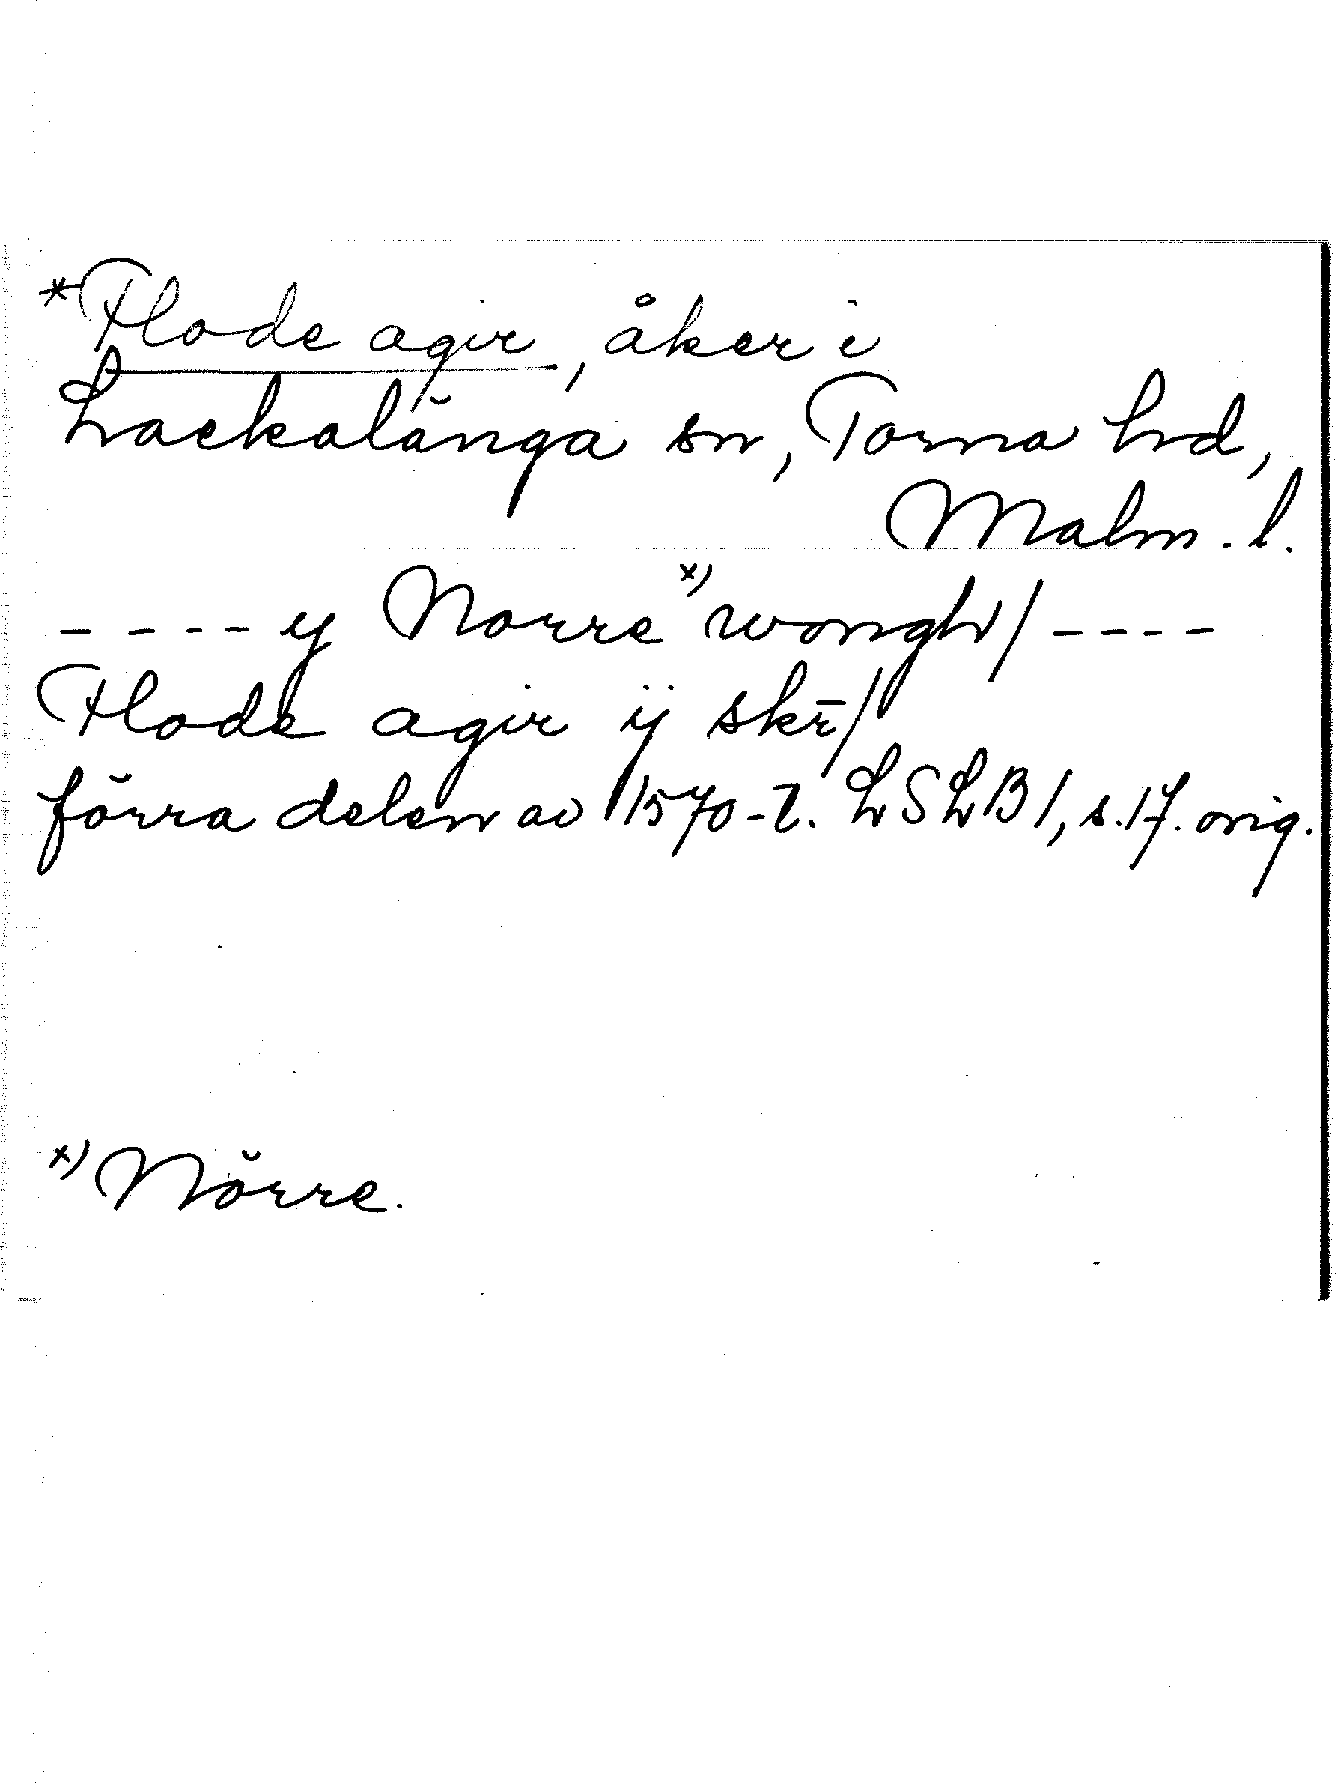 *Flode agir, åker i
Lackalänga sn, Torna hd,
Malm. l.
---- y Norre x) wongh/ ----
Flode agir ij skr̄/
förra delen av 1570-t. LSLB 1, s. 17. orig.
x) Nörre.